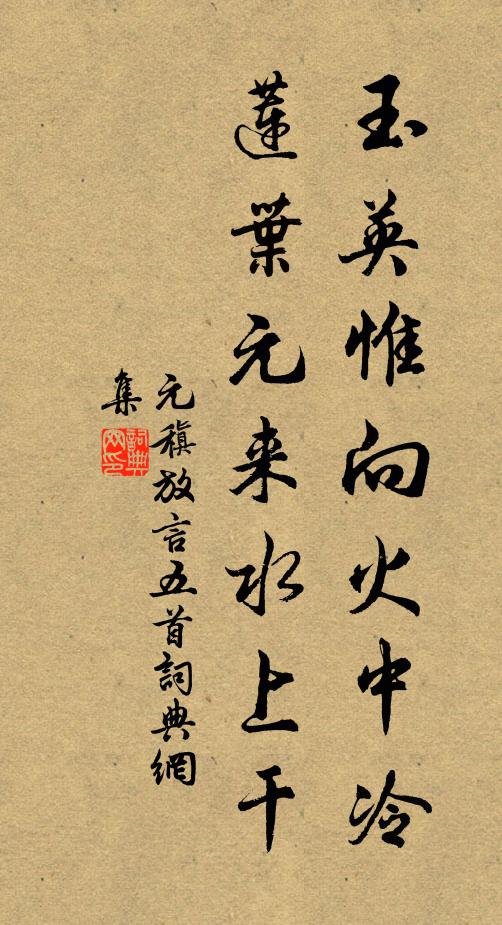 玉英惟向火中冷
蓮葉元来水上干
元稹放言五首詞典網
集
詞典網印